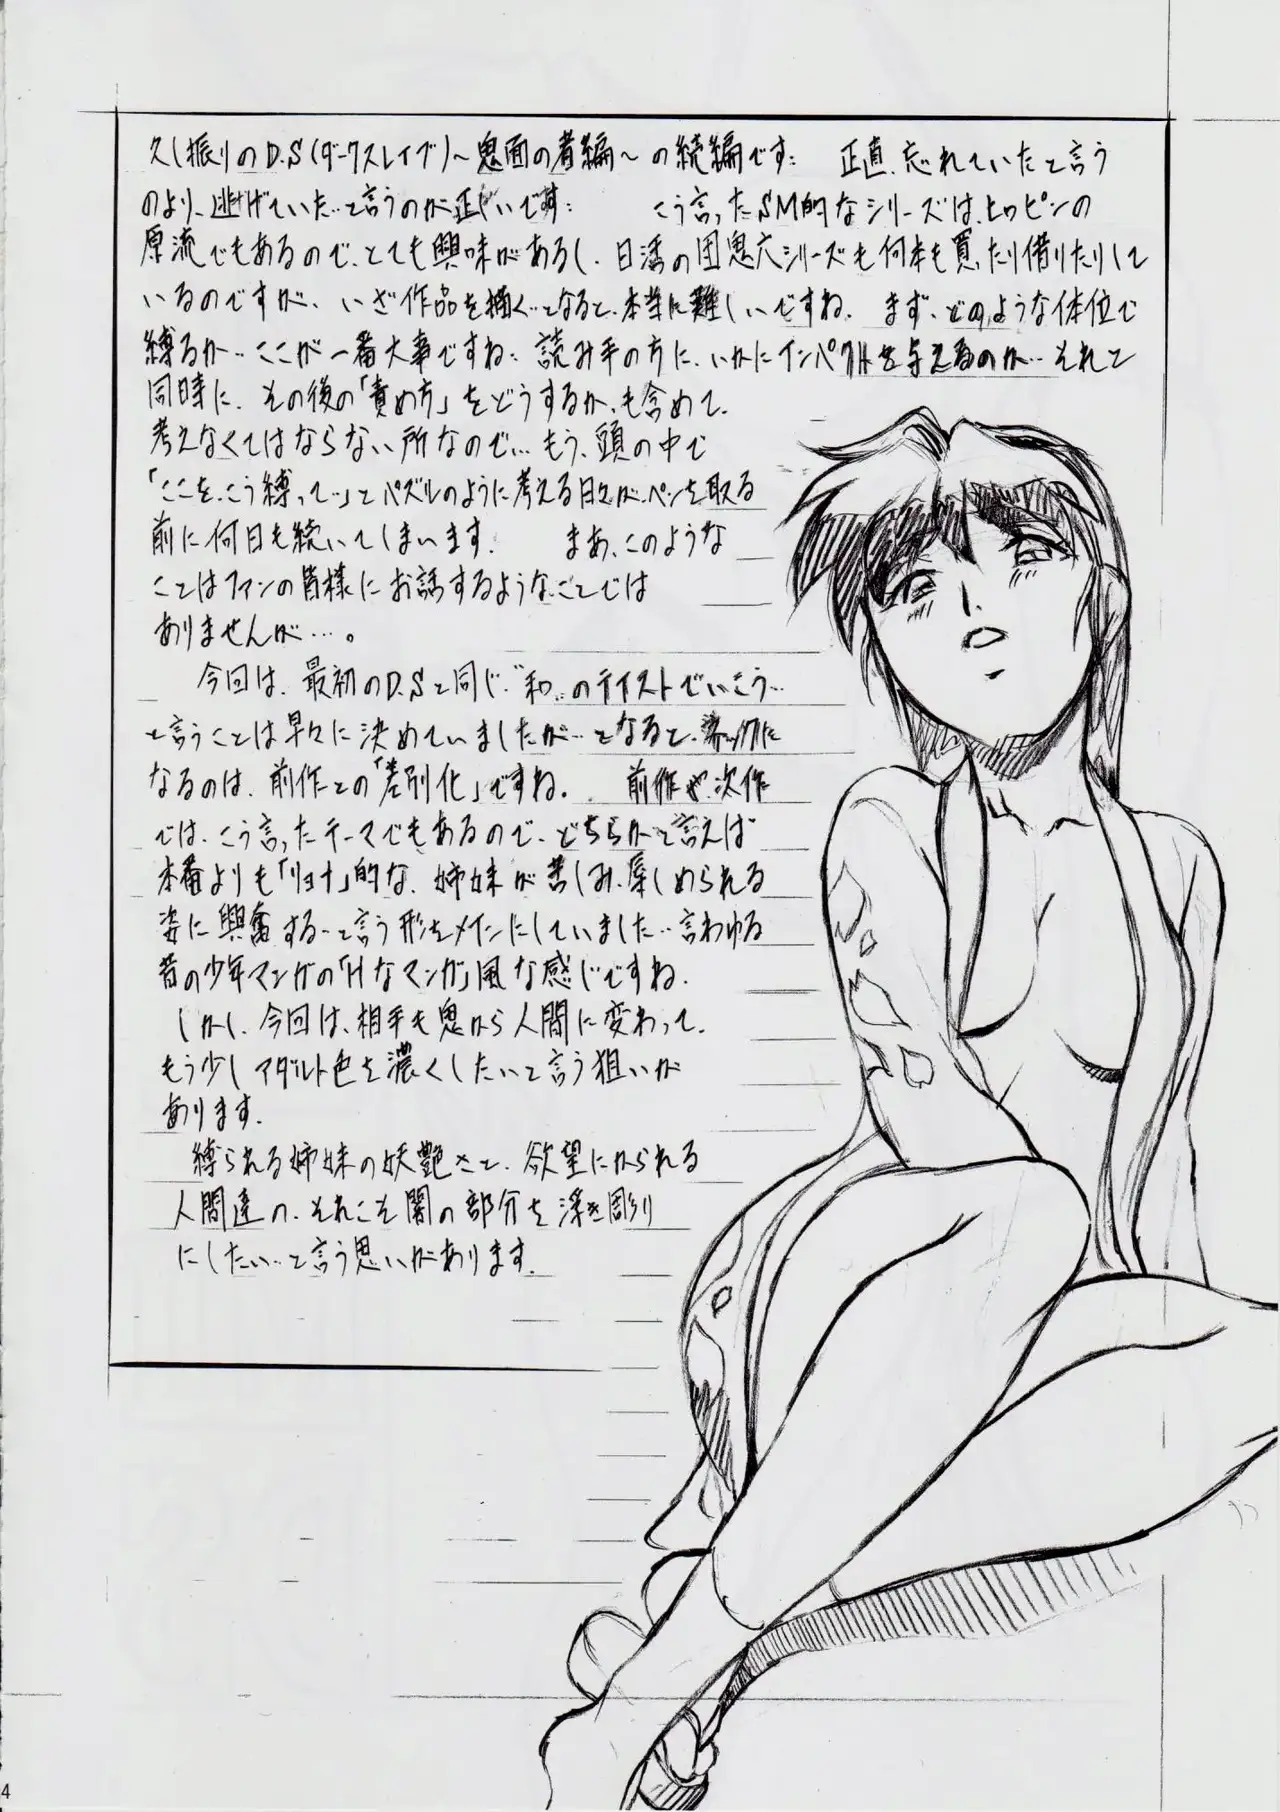 久し振りのD.S(ダークスレイブ)〜鬼面の者編〜の続編です… 正直、忘れていたと言う
のより、逃げていた…と言うのが正しいです… こう言ったSM的なシリーズは、ヒロピンの
原流でもあるので、とても興味があるし、日活の団鬼六シリーズも何本も買ったり借りたりして
いるのですが、いざ作品を描く…となると、本当に難しいですね。まず、どのような体位で
縛るか…ここが一番大事ですね… 読み手の方に、いかにインパクトを与えるのか…それと
同時に、その後の「責め方」をどうするか、も含めて、
考えなくてはならない所なので…もう、頭の中で
「ここを、こう縛って…」とパズルのように考える日々がペンを取る
前に何日も続いてしまいます。 まあ、このような
ことはファンの皆様にお話するようなことでは
ありませんが…。
今回は、最初のD.Sと同じ“和”のテイストでいこう…
と言うことは早々に決めていましたが…となると、ネックに
なるのは、前作との「差別化」ですね。 前作や次作
では、こう言ったテーマでもあるので、どちらかと言えば
本番よりも「リョナ」的な、姉妹が苦しみ、辱しめられる
姿に興奮する…と言う形をメインにしていました…言わゆる
昔の少年マンガの「Hなマンガ」風な感じですね。
しかし、今回は、相手も鬼から人間に変わって、
もう少しアダルト色を濃くしたいと言う狙いが
あります。
縛られる姉妹の妖艶さと、欲望にかられる
人間達の、それこそ闇の部分を浮き彫り
にしたい…と言う思いがあります。
4